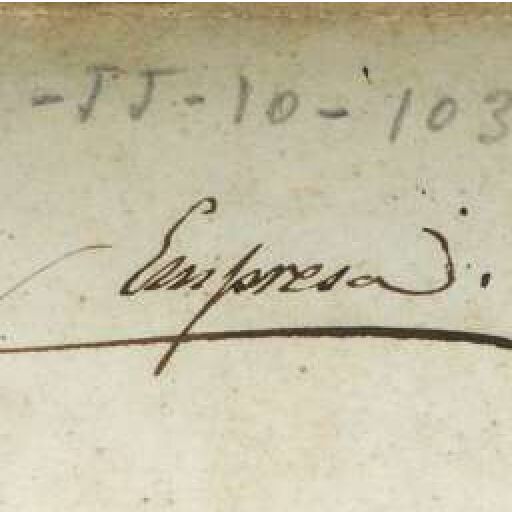 -JJ-10-103
Empresa.